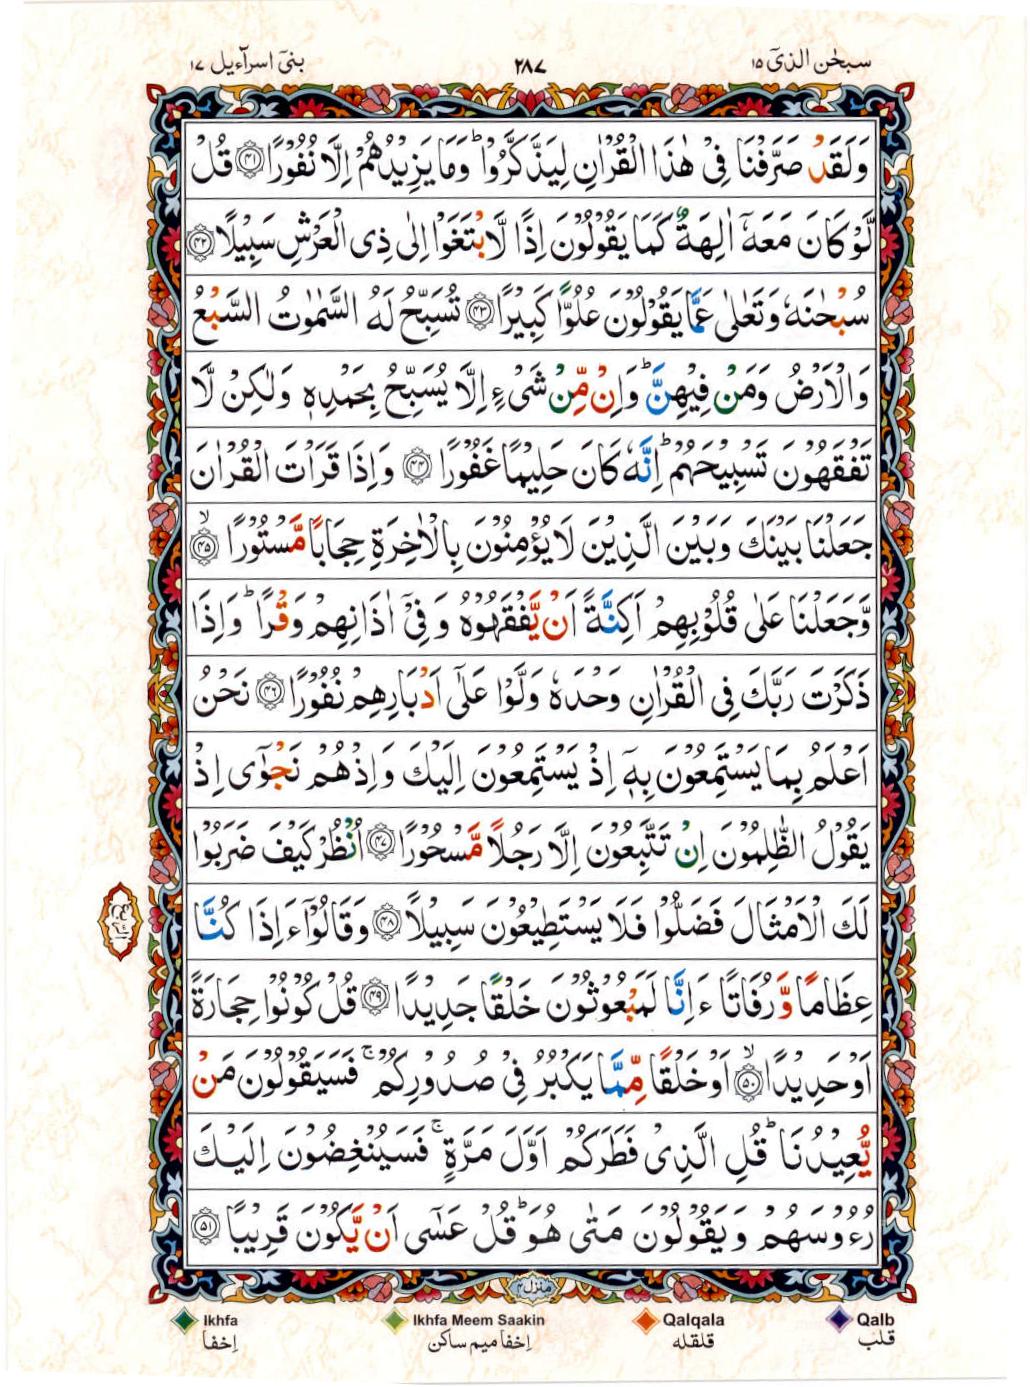 سبحٰن الذیٓ ۱۵
۲۸۷
بنیٓ اسرآءیل ۱۷
وَلَقَدْ صَرَّفْنَا فِیْ هٰذَا الْقُرْاٰنِ لِیَذَّكَّرُوْا ؕ وَمَا یَزِیْدُهُمْ اِلَّا نُفُوْرًا ﴿۴۱﴾ قُلْ
لَّوْ كَانَ مَعَهٗۤ اٰلِهَةٌ كَمَا یَقُوْلُوْنَ اِذًا لَّابْتَغَوْا اِلٰی ذِی الْعَرْشِ سَبِیْلًا ﴿۴۲﴾
سُبْحٰنَهٗ وَتَعٰلٰی عَمَّا یَقُوْلُوْنَ عُلُوًّا كَبِیْرًا ﴿۴۳﴾ تُسَبِّحُ لَهُ السَّمٰوٰتُ السَّبْعُ
وَالْاَرْضُ وَمَنْ فِیْهِنَّ ؕ وَاِنْ مِّنْ شَیْءٍ اِلَّا یُسَبِّحُ بِحَمْدِهٖ وَلٰكِنْ لَّا
تَفْقَهُوْنَ تَسْبِیْحَهُمْ ؕ اِنَّهٗ كَانَ حَلِیْمًا غَفُوْرًا ﴿۴۴﴾ وَاِذَا قَرَاْتَ الْقُرْاٰنَ
جَعَلْنَا بَیْنَكَ وَبَیْنَ الَّذِیْنَ لَا یُؤْمِنُوْنَ بِالْاٰخِرَةِ حِجَابًا مَّسْتُوْرًا ﴿۴۵﴾ ۙ
وَّجَعَلْنَا عَلٰی قُلُوْبِهِمْ اَكِنَّةً اَنْ یَّفْقَهُوْهُ وَفِیْۤ اٰذَانِهِمْ وَقْرًا ؕ وَاِذَا
ذَكَرْتَ رَبَّكَ فِی الْقُرْاٰنِ وَحْدَهٗ وَلَّوْا عَلٰۤی اَدْبَارِهِمْ نُفُوْرًا ﴿۴۶﴾ نَحْنُ
اَعْلَمُ بِمَا یَسْتَمِعُوْنَ بِهٖۤ اِذْ یَسْتَمِعُوْنَ اِلَیْكَ وَاِذْ هُمْ نَجْوٰۤی اِذْ
یَقُوْلُ الظّٰلِمُوْنَ اِنْ تَتَّبِعُوْنَ اِلَّا رَجُلًا مَّسْحُوْرًا ﴿۴۷﴾ اُنْظُرْ كَیْفَ ضَرَبُوْا
لَكَ الْاَمْثَالَ فَضَلُّوْا فَلَا یَسْتَطِیْعُوْنَ سَبِیْلًا ﴿۴۸﴾ وَقَالُوْۤا ءَاِذَا كُنَّا
عِظَامًا وَّرُفَاتًا ءَاِنَّا لَمَبْعُوْثُوْنَ خَلْقًا جَدِیْدًا ﴿۴۹﴾ قُلْ كُوْنُوْا حِجَارَةً
اَوْ حَدِیْدًا ﴿۵۰﴾ ۙ اَوْ خَلْقًا مِّمَّا یَكْبُرُ فِیْ صُدُوْرِكُمْ ۚ فَسَیَقُوْلُوْنَ مَنْ
یُّعِیْدُنَا ؕ قُلِ الَّذِیْ فَطَرَكُمْ اَوَّلَ مَرَّةٍ ۚ فَسَیُنْغِضُوْنَ اِلَیْكَ
رُءُوْسَهُمْ وَیَقُوْلُوْنَ مَتٰی هُوَ ؕ قُلْ عَسٰۤی اَنْ یَّكُوْنَ قَرِیْبًا ﴿۵۱﴾
منزل ۴
Ikhfa
Ikhfa Meem Saakin
Qalqala
Qalb
اِخفا
اِخفا میم ساکن
قلقله
قلب